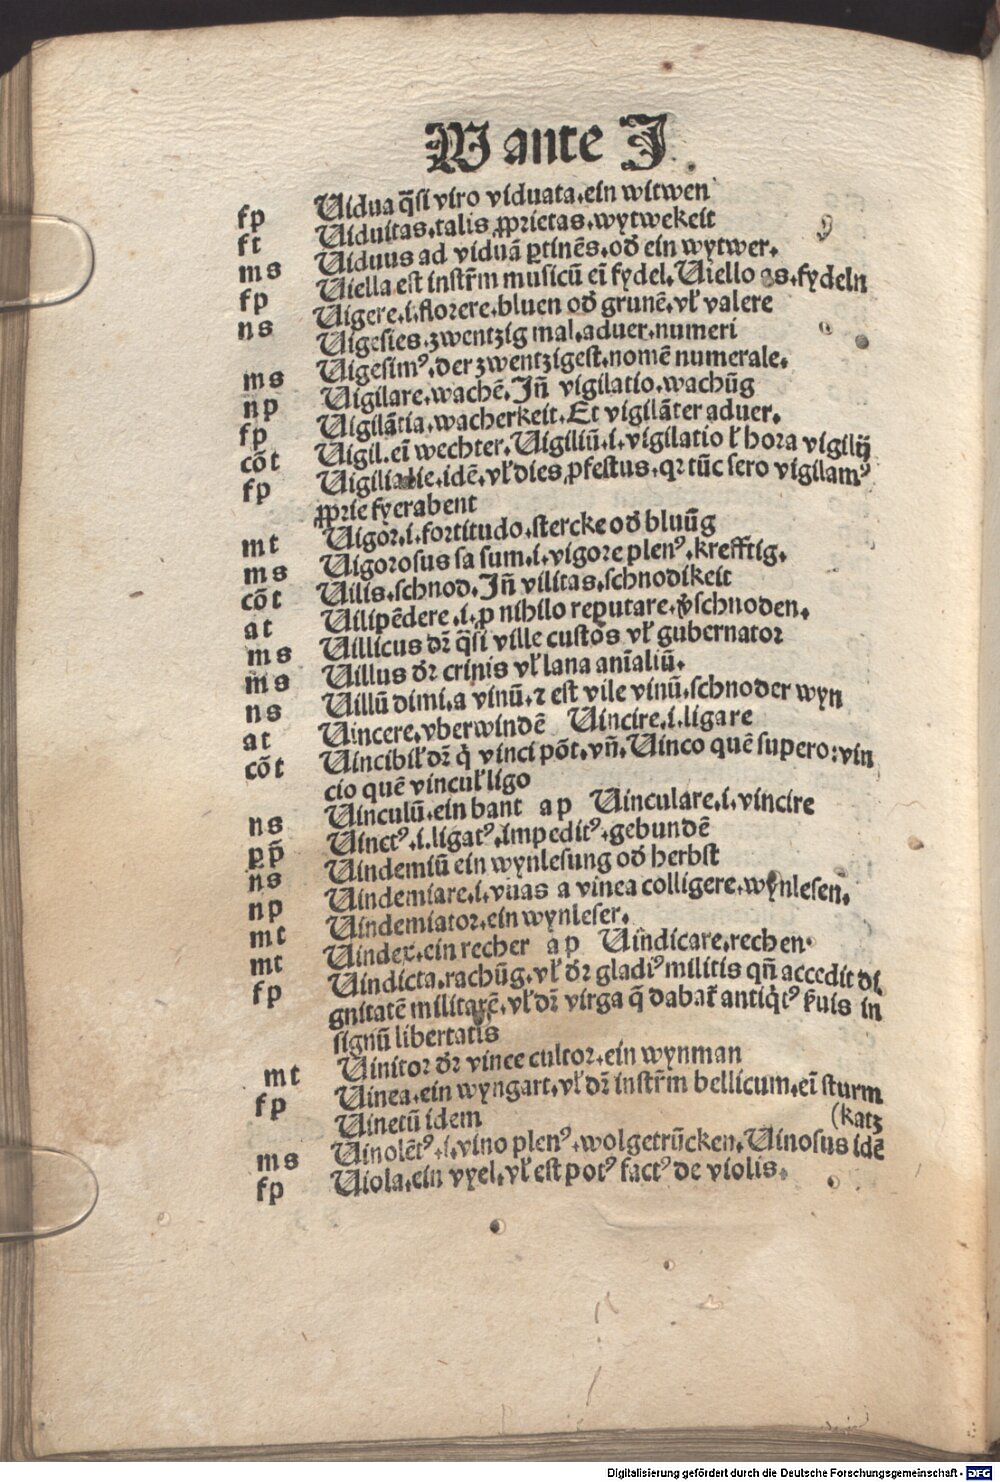 W ante I
fp Uidua q̄si viro viduata.ein witwen
ft Uiduitas.talis ꝓprietas.wytwekeit
ms Uiduus ad viduā ꝑtinēs.od̕ ein wytwer.
fp Uiella est instr̄m musicū eī fydel.Uiello as.fydeln
ns Uigere.i.florere.bluen od̕ grunē.vł valere
Uigesies.zwentzig mal.aduer.numeri
ms Uigesimꝰ.der zwentzigest.nomē numerale.
np Uigilare.wachē.Iñ vigilatio.wachūg
fp Uigilātia.wacherkeit.Et vigilāter aduer.
cōt Uigil.eī wechter.Uigiliū.i.vigilatio ł hora vigilij
fp Uigilia die.idē.vł dies ꝓfestus.qꝛ tūc sero vigilamꝰ
ꝓprie fyerabent
mt Uigor.i.fortitudo.stercke od̕ bluūg
ms Uigorosus sa sum.i.vigore plenꝰ.krefftig.
cōt Uilis.schnod.Iñ vilitas.schnodikeit
at Uilipēdere.i.ꝑ nihilo reputare.v̕schnoden.
ms Uillicus dr̄ q̄si ville custos vł gubernator
ms Uillus dr̄ crinis vł lana anīaliū.
ns Uillū dimi.a vinū.ꝛ est vile vinū.schnoder wyn
at Uincere.vberwindē Uincire.i.ligare
cōt Uincibił dr̄ q̇ vinci pōt.vñ.Uinco quē supero:vin
cio quē vincuł ligo
ns Uinculū.ein bant ap Uinculare.i.vincire
ꝑp̄ Uinctꝰ.i.ligatꝰ.impeditꝰ.gebundē
ns Uindemiū ein wynlesung od̕ herbst
np Uindemiare.i.vuas a vinea colligere.wynlesen.
mt Uindemiator.ein wynleser.
mt Uindex.ein recher ap Uindicare.rechen.
fp Uindicta.rachūg.vł dr̄ gladiꝰ militis qñ accedit di
gnitatē militarē.vł dr̄ virga q̄ dabat̄ antiq̇tꝰ s̕uis in
signū libertatis
mt Uinitor dr̄ vinee cultor.ein wynman
fp Uinea.ein wyngart.vł dr̄ instr̄m bellicum.eī sturm
Uinetū idem (katz
ms Uinolētꝰ.i.vino plenꝰ.wolgetrūcken.Uinosus idē
fp Uiola.ein vyel.vł est potꝰ factꝰ de violis.
Digitalisierung gefördert durch die Deutsche Forschungsgemeinschaft - DFG